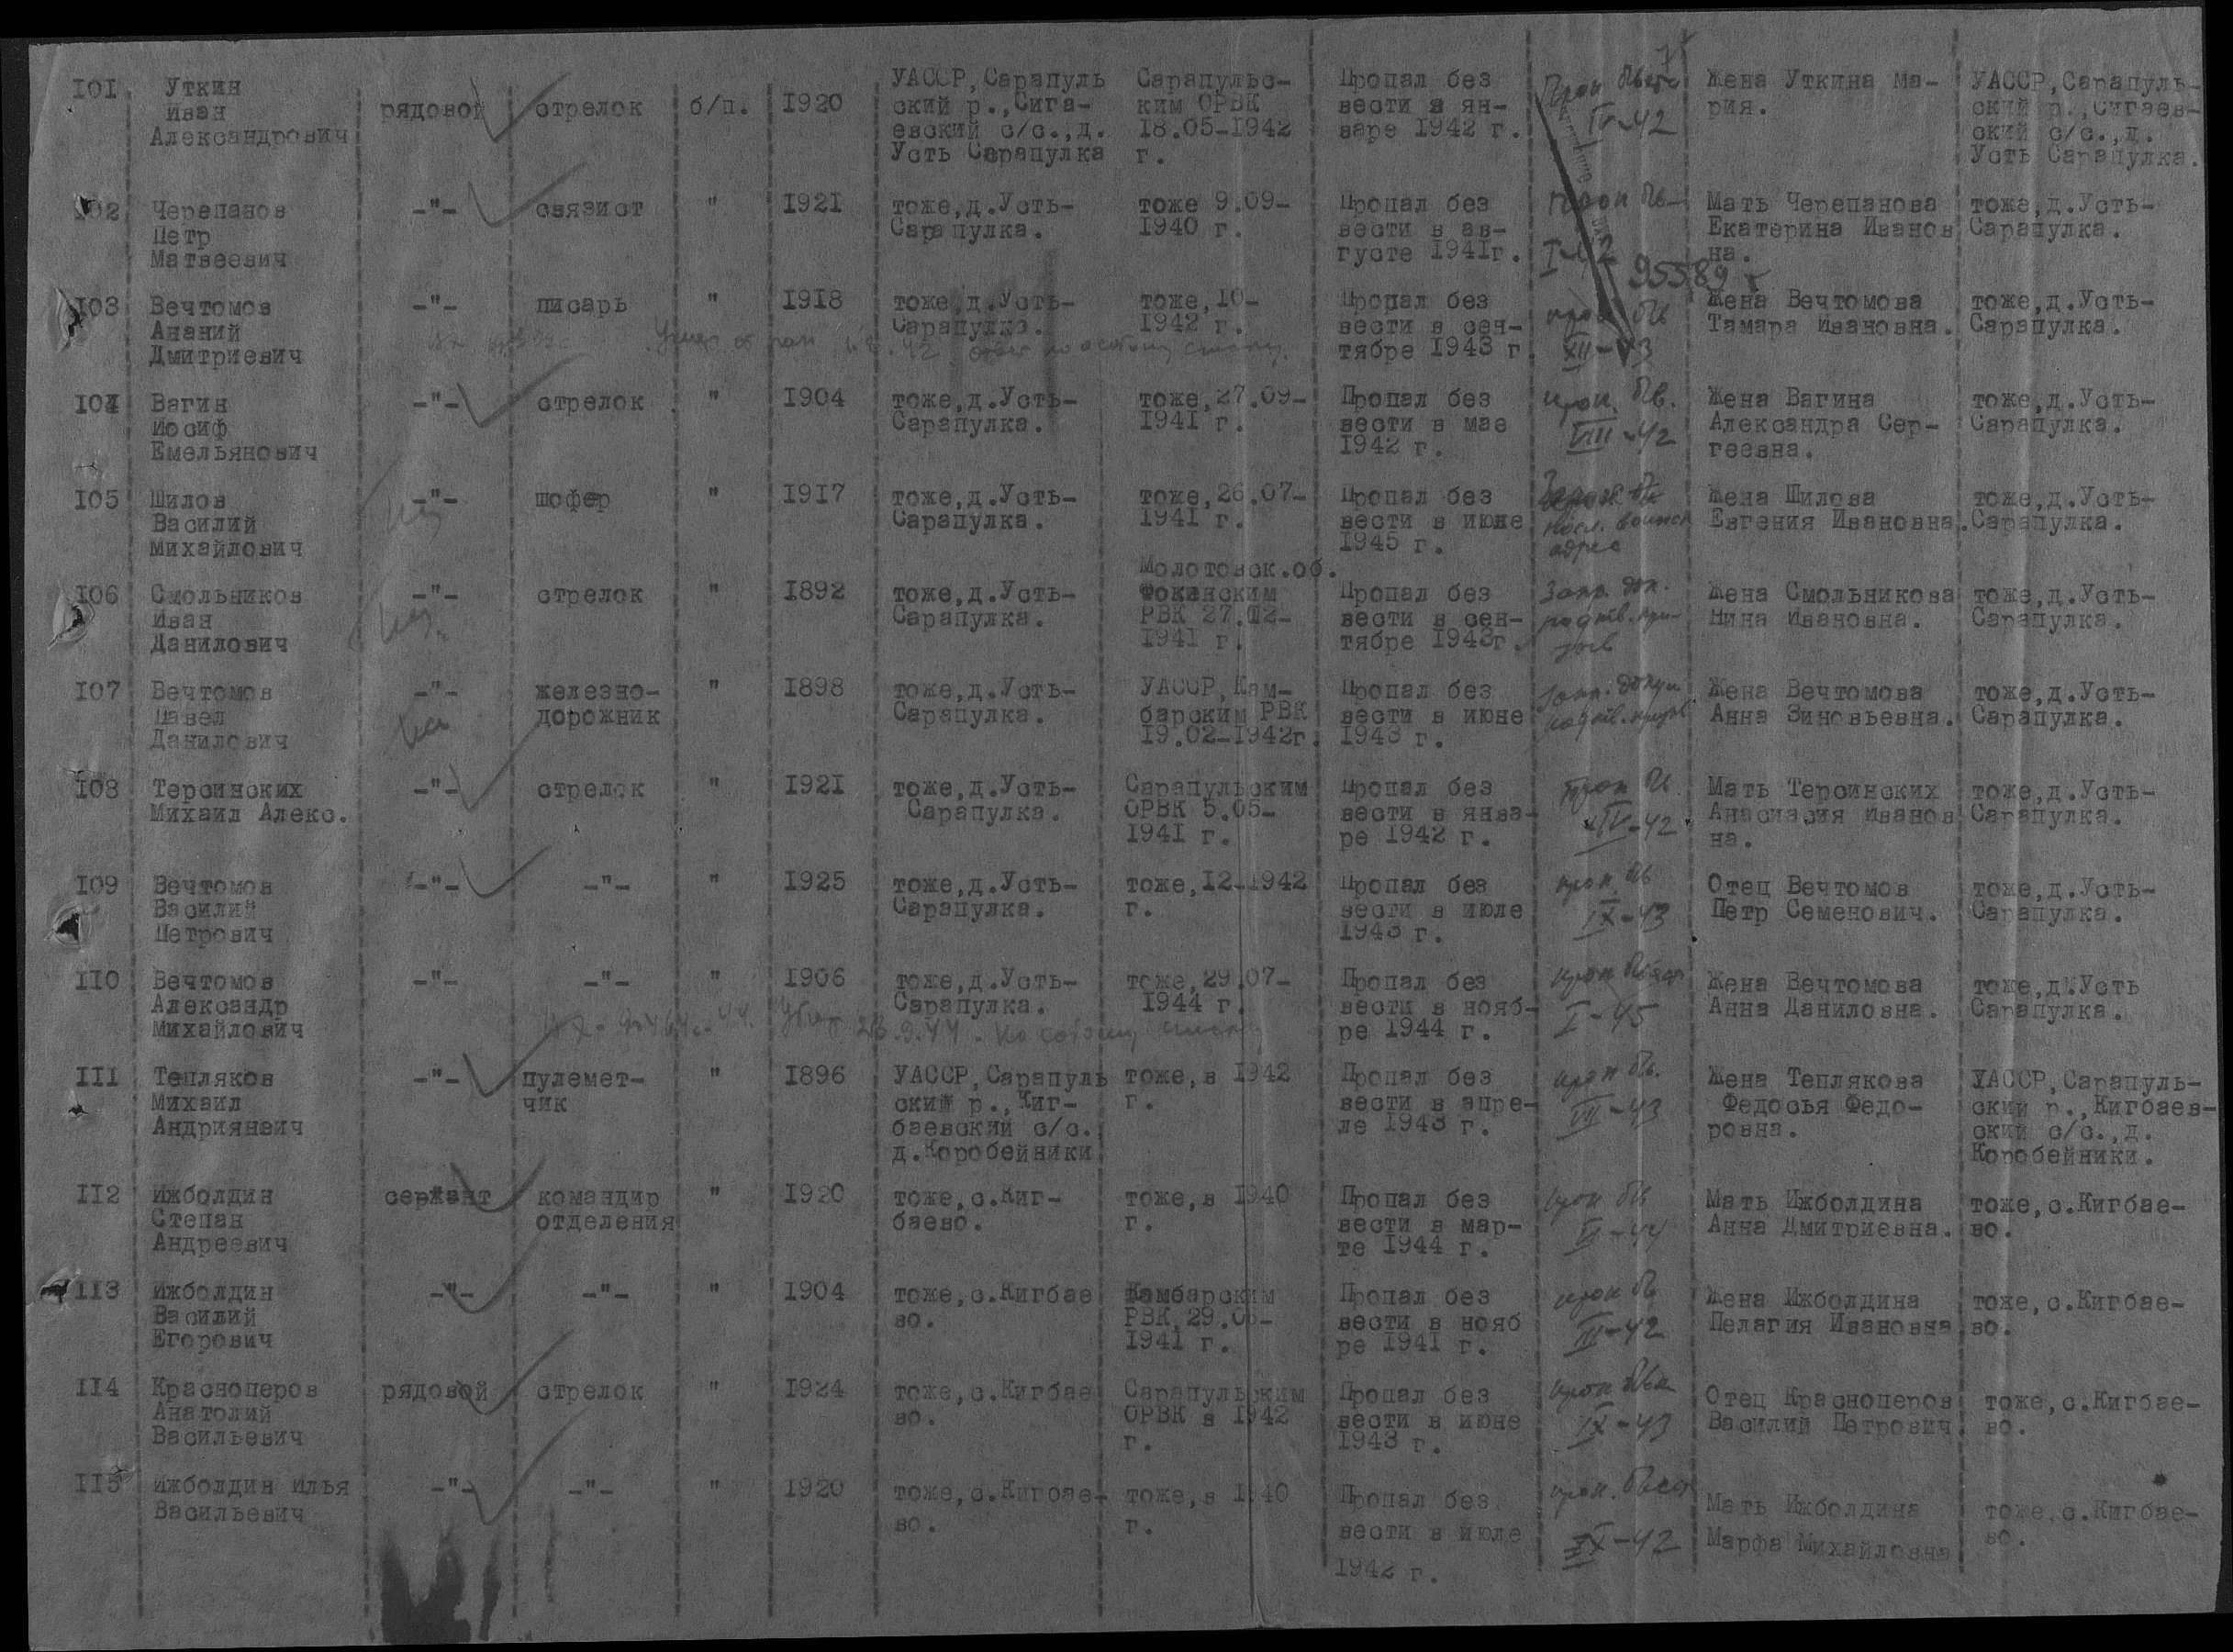 101 Уткин Иван Александрович рядовой стрелок б/п. 1920 УАССР, Сарапуль ский р., Сига- евский с/с., д. Усть Сарапулка Сарапульс- ким ОРВК 18.05-1942 г. Пропал без вести в ян- варе 1942 г. IV-42 Жена Уткина Ма- рия. УАССР, Сарапуль- ский р., Сигаев- ский с/с., д. Усть Сарапулка.
102 Черепанов Петр Матвеевич -"- связист " 1921 тоже, д.Усть- Сарапулка. тоже 9.09- 1940 г. Пропал без вести в ав- густе 1941г. I-42 Мать Черепанова Екатерина Иванов на. тоже, д.Усть- Сарапулка.
95589
103 Вечтомов Ананий Дмитриевич -"- писарь " 1918 тоже, д.Усть- Сарапулка. тоже, 10- 1942 г. Пропал без вести в сен- тябре 1943 г. XII-43 Жена Вечтомова Тамара Ивановна. тоже, д.Усть- Сарапулка.
104 Вагин Иосиф Емельянович -"- стрелок " 1904 тоже, д.Усть- Сарапулка. тоже, 27.09- 1941 г. Пропал без вести в мае 1942 г. проп. б/в. VIII-42 Жена Вагина Александра Сер- геевна. тоже, д.Усть- Сарапулка.
105 Шилов Василий Михайлович -"- шофер " 1917 тоже, д.Усть- Сарапулка. тоже, 26.07- 1941 г. Пропал без вести в июне 1945 г. адрес Жена Шилова Евгения Ивановна. тоже, д.Усть- Сарапулка.
106 Смольников Иван Данилович -"- стрелок " 1892 тоже, д.Усть- Сарапулка. Молотовск.об. Фокинским РВК 27.12- 1941 г. Пропал без вести в сен- тябре 1943г. Жена Смольникова Нина Ивановна. тоже, д.Усть- Сарапулка.
107 Вечтомов Павел Данилович -"- железно- дорожник " 1898 тоже, д.Усть- Сарапулка. УАССР, Кам- барским РВК 19.02-1942г. Пропал без вести в июне 1943 г. Жена Вечтомова Анна Зиновьевна. тоже, д.Усть- Сарапулка.
108 Терсинских Михаил Алекс. -"- стрелок " 1921 тоже, д.Усть- Сарапулка. Сарапульским ОРВК 5.05- 1941 г. Пропал без вести в янва- ре 1942 г. IV-42 Мать Терсинских Анасиасия Иванов на. тоже, д.Усть- Сарапулка.
109 Вечтомов Василий Петрович -"- -"- " 1925 тоже, д.Усть- Сарапулка. тоже, 12-1942 г. Пропал без вести в июле 1943 г. проп. б/в IX-43 Отец Вечтомов Петр Семенович. тоже, д.Усть- Сарапулка.
110 Вечтомов Александр Михайлович -"- -"- " 1906 тоже, д.Усть- Сарапулка. тоже, 29.07- 1944 г. Пропал без вести в нояб- ре 1944 г. I-45 Жена Вечтомова Анна Даниловна. тоже, д.Усть Сарапулка.
111 Тепляков Михаил Андриянвич -"- пулемет- чик " 1896 УАССР, Сарапуль ский р., Киг- баевский с/с. д.Коробейники. тоже, в 1942 г. Пропал без вести в апре- ле 1943 г. проп б/в. VII-43 Жена Теплякова Федосья Федо- ровна. УАССР, Сарапуль- ский р., Кигбаев- ский с/с., д. Коробейники.
112 Ижболдин Степан Андреевич сержант командир отделения " 1920 тоже, с.Киг- баево. тоже, в 1940 г. Пропал без вести в мар- те 1944 г. проп б/в VI-44 Мать Ижболдина Анна Дмитриевна. тоже, с.Кигбае- во.
113 Ижболдин Василий Егорович -"- -"- " 1904 тоже, с.Кигбае во. Камбарским РВК 29.06- 1941 г. Пропал без вести в нояб ре 1941 г. проп б/в III-42 Жена Ижболдина Пелагия Ивановна. тоже, с.Кигбае- во.
114 Красноперов Анатолий Васильевич рядовой стрелок " 1924 тоже, с.Кигбае во. Сарапульским ОРВК в 1942 г. Пропал без вести в июне 1943 г. IX-43 Отец Красноперов Василий Петрович. тоже, с.Кигбае- во.
115 Ижболдин Илья Васильевич -"- -"- " 1920 тоже, с.Кигбае- во. тоже, в 1940 г. Пропал без вести в июле 1942 г. IX-42 Мать Ижболдина Марфа Михайловна тоже, с.Кигбае- во.